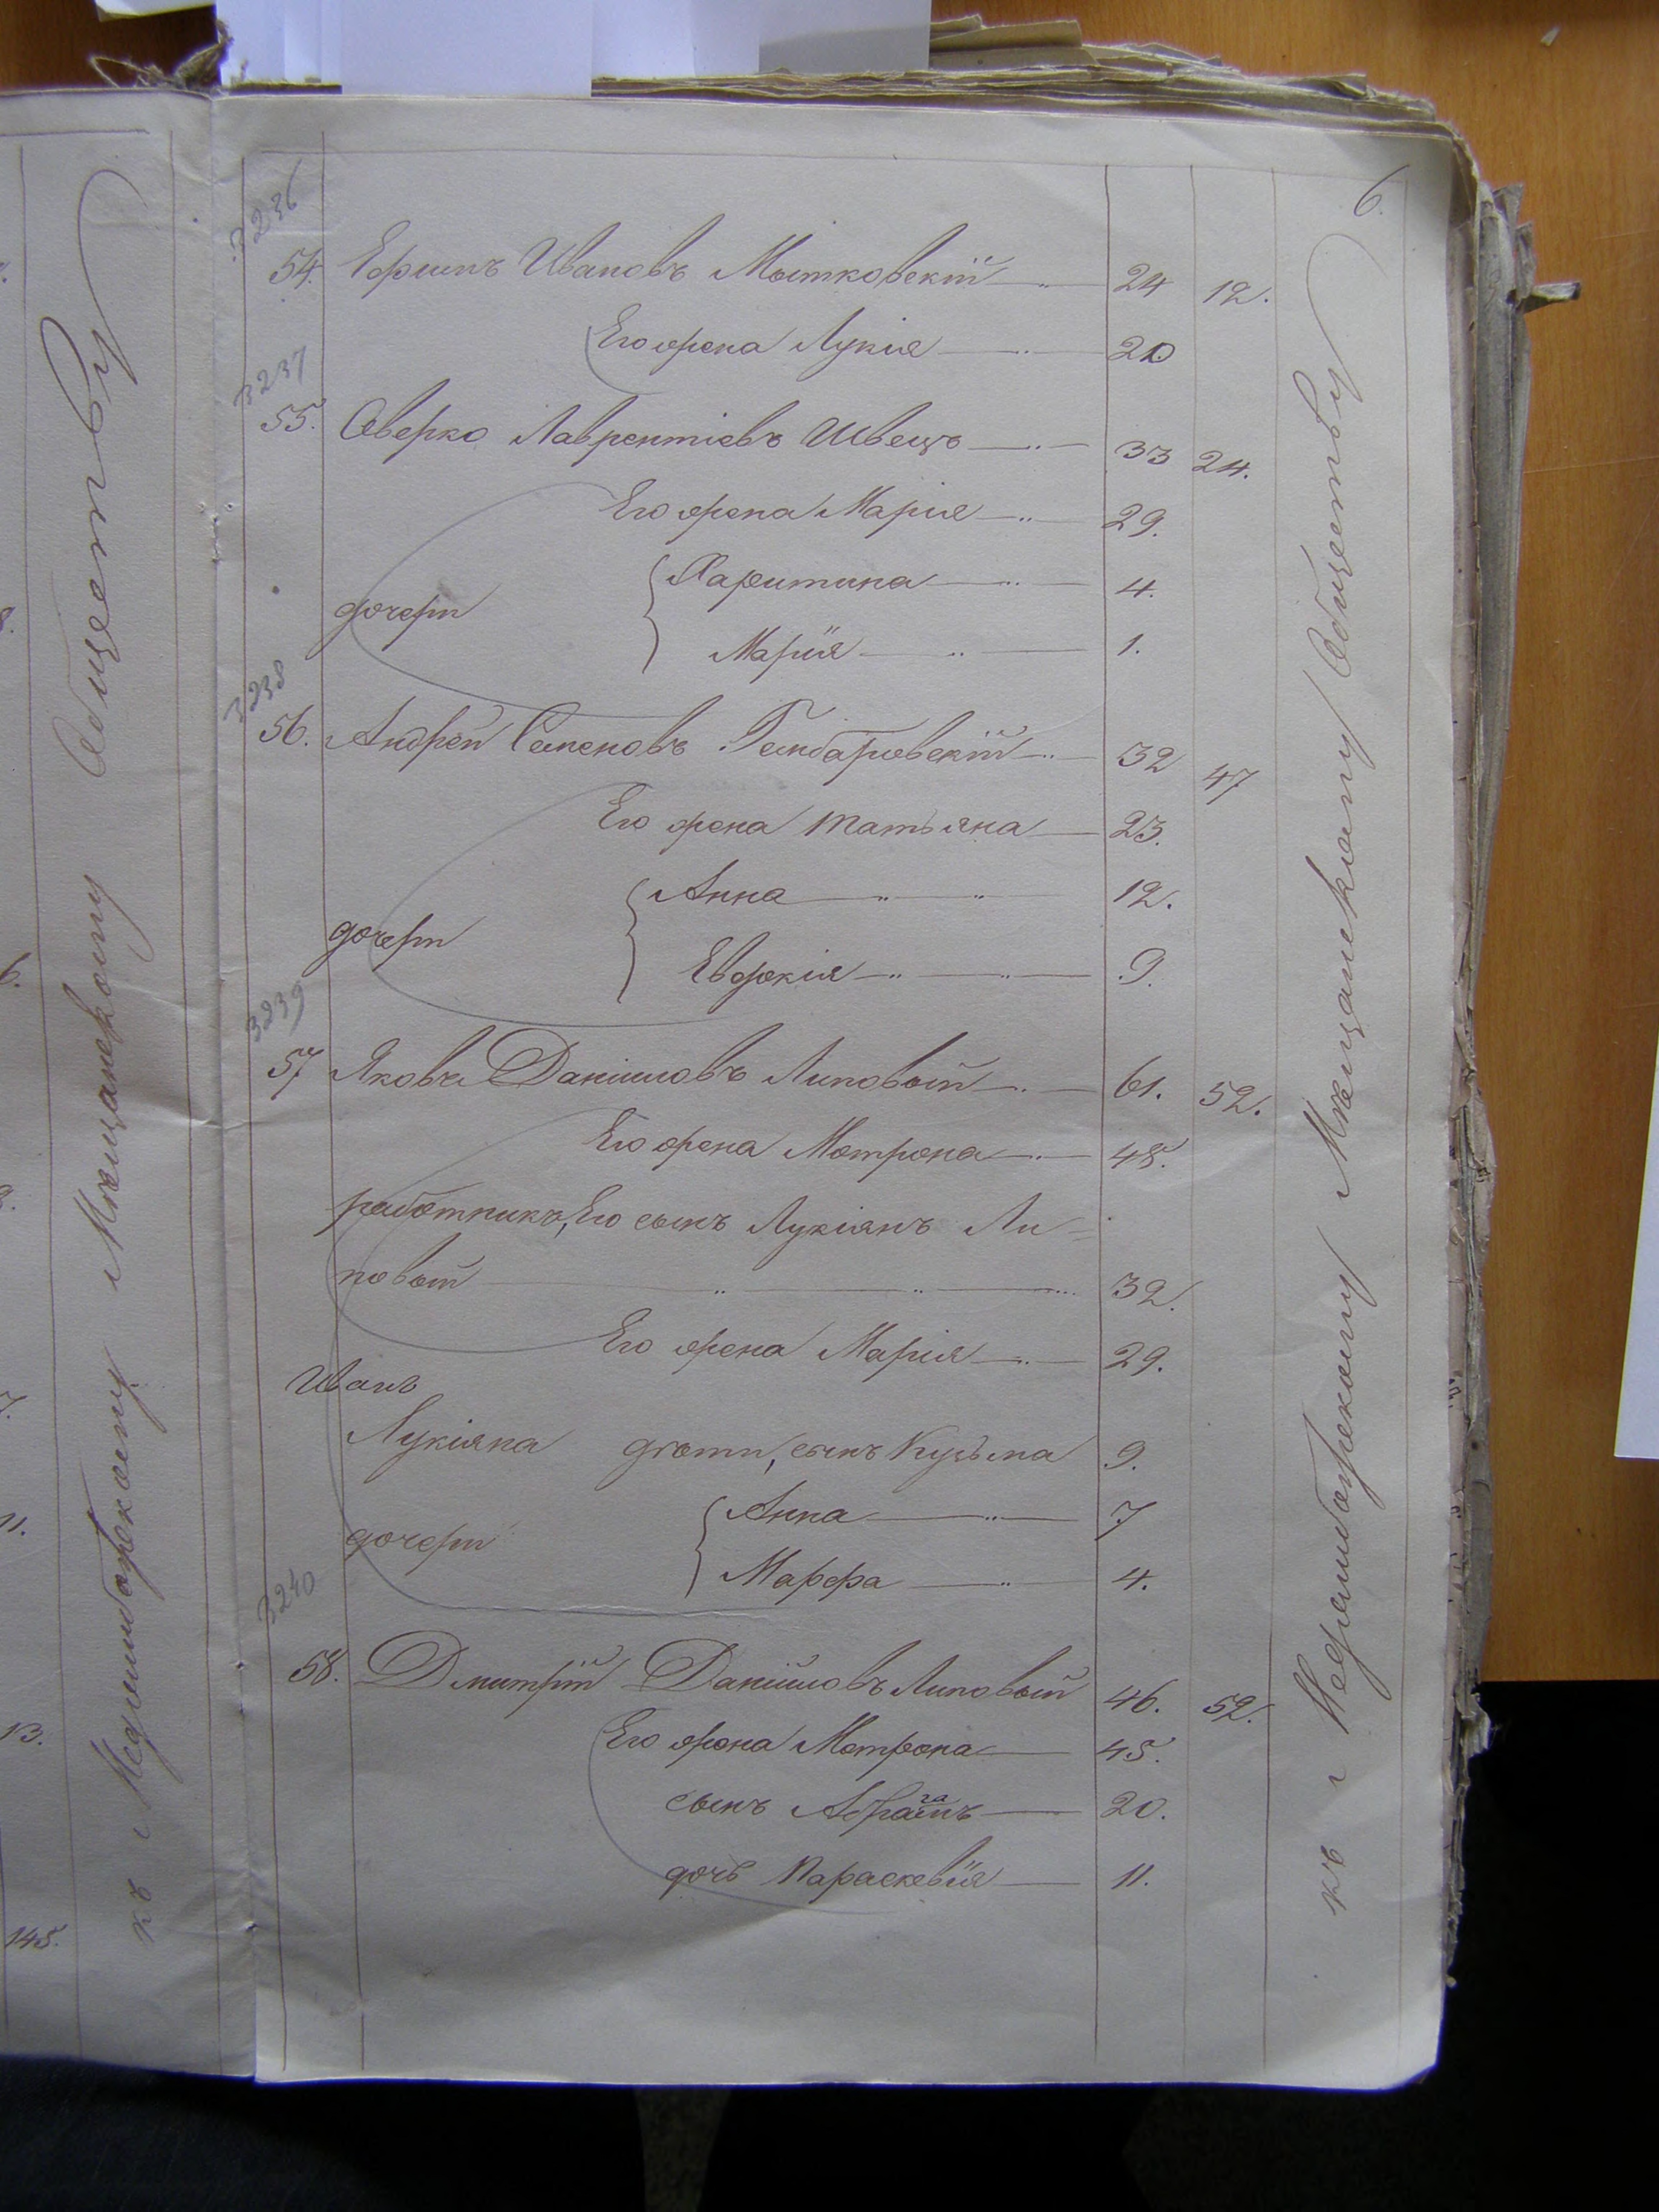 6.
3236
54. Ефимъ Ивановъ Мытковскій 24 12.
Его жена Лукія 20
3237
55. Оверко Лаврентіевъ Швецъ 33 24.
Его жена Марія 29.
дочери Харитина 4.
Марія 1.
3238
56. Андрей Семеновъ 32 47
Его жена Татьяна 23.
дочери Анна 12.
Евдокія 9.
3239
57 Яковъ Даніиловъ Липовый 61. 52.
Его жена Мотрона 48.
работникъ, Его сынъ Лукіянъ Ли=
повый 32.
Его жена Марія 29.
Иванъ
Лукіяна дѣти, сынъ Кузьма 9.
дочери Анна 7
Марфа 4.
3240
58. Дмитрій Даніиловъ Липовый 46. 52.
Его жена Мотрона 45.
сынъ 20.
дочь Параскевія 11.
къ Меджибожскому Мѣщанскому Обществу
къ Меджибожскому Мѣщанскому Обществу
8.
6.
7.
11.
13.
145.